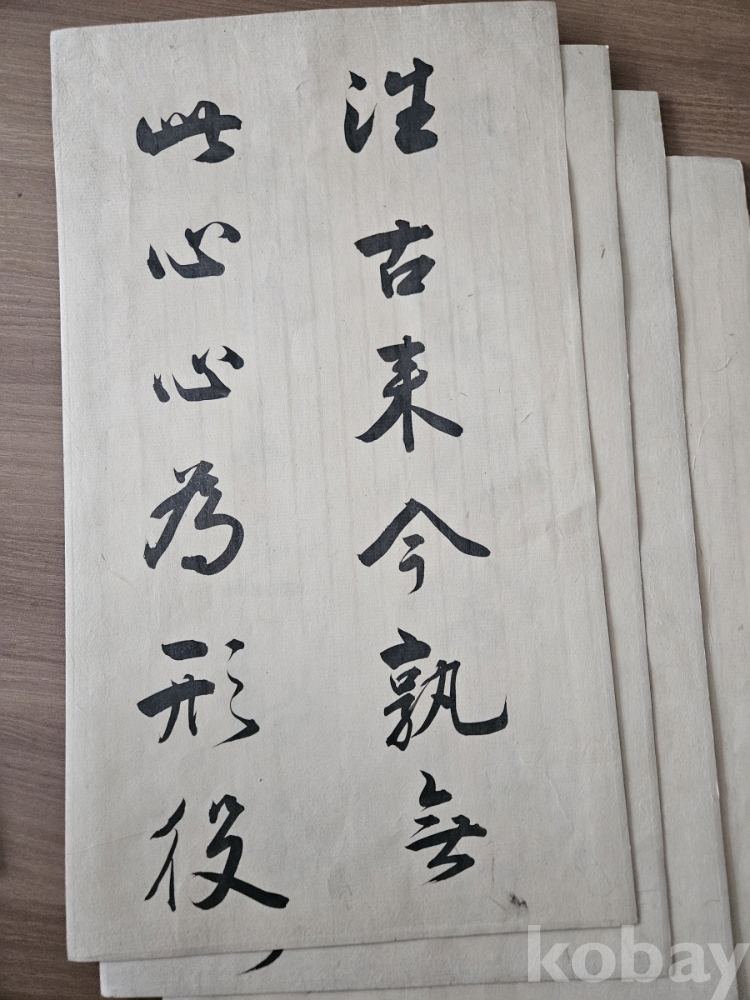 往古来今孰無
此心心為形役
kobay